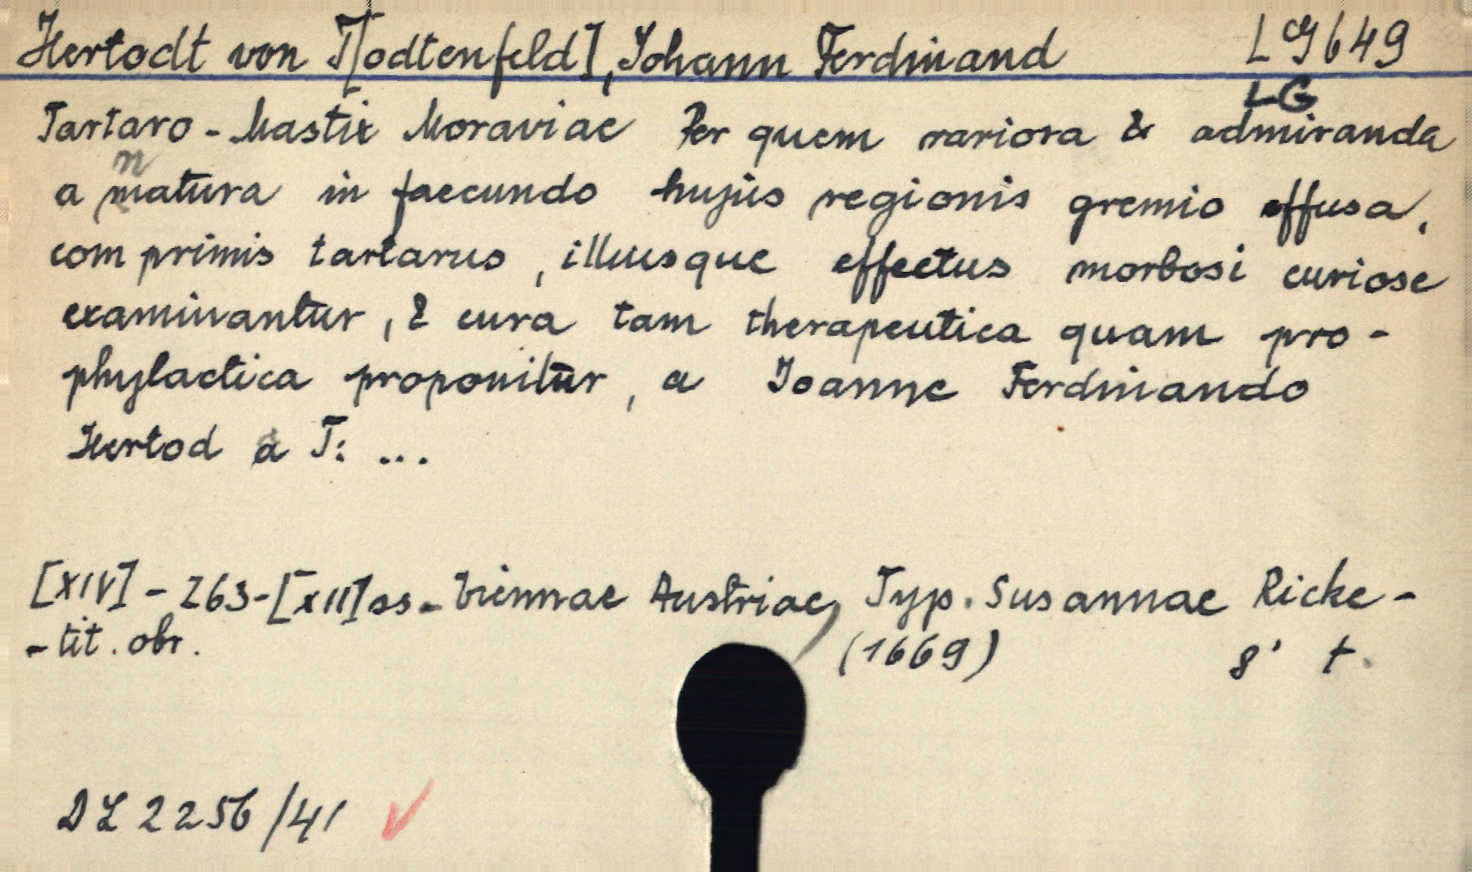 Hertodt von T[odtenfeld], Johann Ferdinand LG649
LG
Tartaro-Mastix Moraviae Per quem rariora & admiranda
a natura in faecundo hujus regionis gremio effusa,
com primis tartarus, illiusque effectus morbosi curiose
examinantur, & cura tam therapeutica quam pro-
phylactica proponitur, a Joanne Ferdinando
Hertod a T: ...
[XIV]-263-[XII]ss-Viennae Austriae, Typ. Susannae Ricke-
-tit. obr. (1669) 8' t.
DL 2256/41 ✓